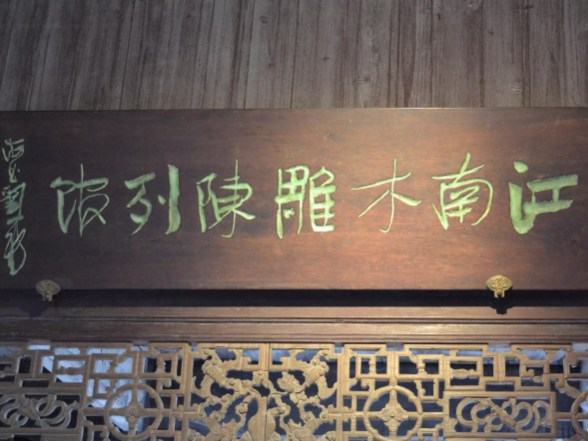 江南木雕陳列館